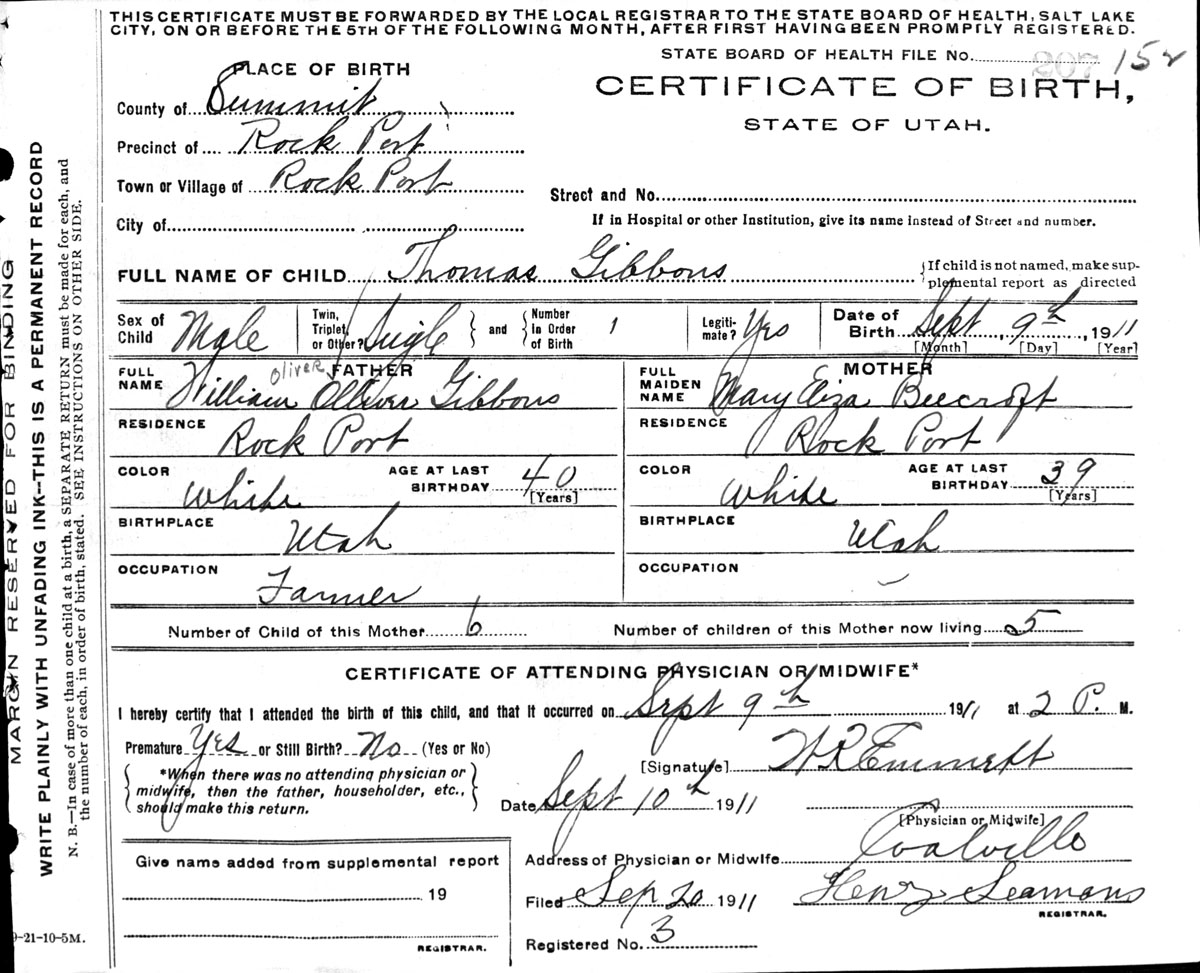 THIS CERTIFICATE MUST BE FORWARDED BY THE LOCAL REGISTRAR TO THE STATE BOARD OF HEALTH, SALT LAKE
CITY, ON OR BEFORE THE 5TH OF THE FOLLOWING MONTH, AFTER FIRST HAVING BEEN PROMPTLY REGISTERED.
STATE BOARD OF HEALTH FILE No. 207 152
PLACE OF BIRTH
CERTIFICATE OF BIRTH,
STATE OF UTAH.
County of Summit
Precinct of Rock Port
Town or Village of Rock Port
Street and No.
City of
If in Hospital or other Institution, give its name instead of Street and number.
FULL NAME OF CHILD Thomas Gibbons
If child is not named, make sup-
plemental report as directed
Sex of Child Male Twin, Triplet, or Other? Single and Number In Order of Birth 1 Legiti-mate? Yes Date of Birth Sept 9th, 1911
[Month] [Day] [Year]
FATHER
Oliver
FULL NAME William Olliver Gibbons
RESIDENCE Rock Port
COLOR White AGE AT LAST BIRTHDAY 40 [Years]
BIRTHPLACE Utah
OCCUPATION Farmer
MOTHER
FULL MAIDEN NAME Mary Eliza Beecroft
RESIDENCE Rock Port
COLOR White AGE AT LAST BIRTHDAY 39 [Years]
BIRTHPLACE Utah
OCCUPATION –
Number of Child of this Mother 6 Number of children of this Mother now living 5
CERTIFICATE OF ATTENDING PHYSICIAN OR MIDWIFE*
I hereby certify that I attended the birth of this child, and that it occurred on Sept 9th 1911 at 2 P. M.
Premature Yes or Still Birth? No (Yes or No)
*When there was no attending physician or
midwife, then the father, householder, etc.,
should make this return.
[Signature] W R Emmett
Date Sept 10th 1911
[Physician or Midwife]
Address of Physician or Midwife Coalville
Filed Sep 20 1911 Henry Seamons
REGISTRAR.
Registered No. 3
Give name added from supplemental report
19
REGISTRAR.
9-21-10-5M.
MARGIN RESERVED FOR BINDING
WRITE PLAINLY WITH UNFADING INK--THIS IS A PERMANENT RECORD
N. B.—In case of more than one child at a birth, a SEPARATE RETURN must be made for each, and
the number of each, in order of birth, stated. SEE INSTRUCTIONS ON OTHER SIDE.